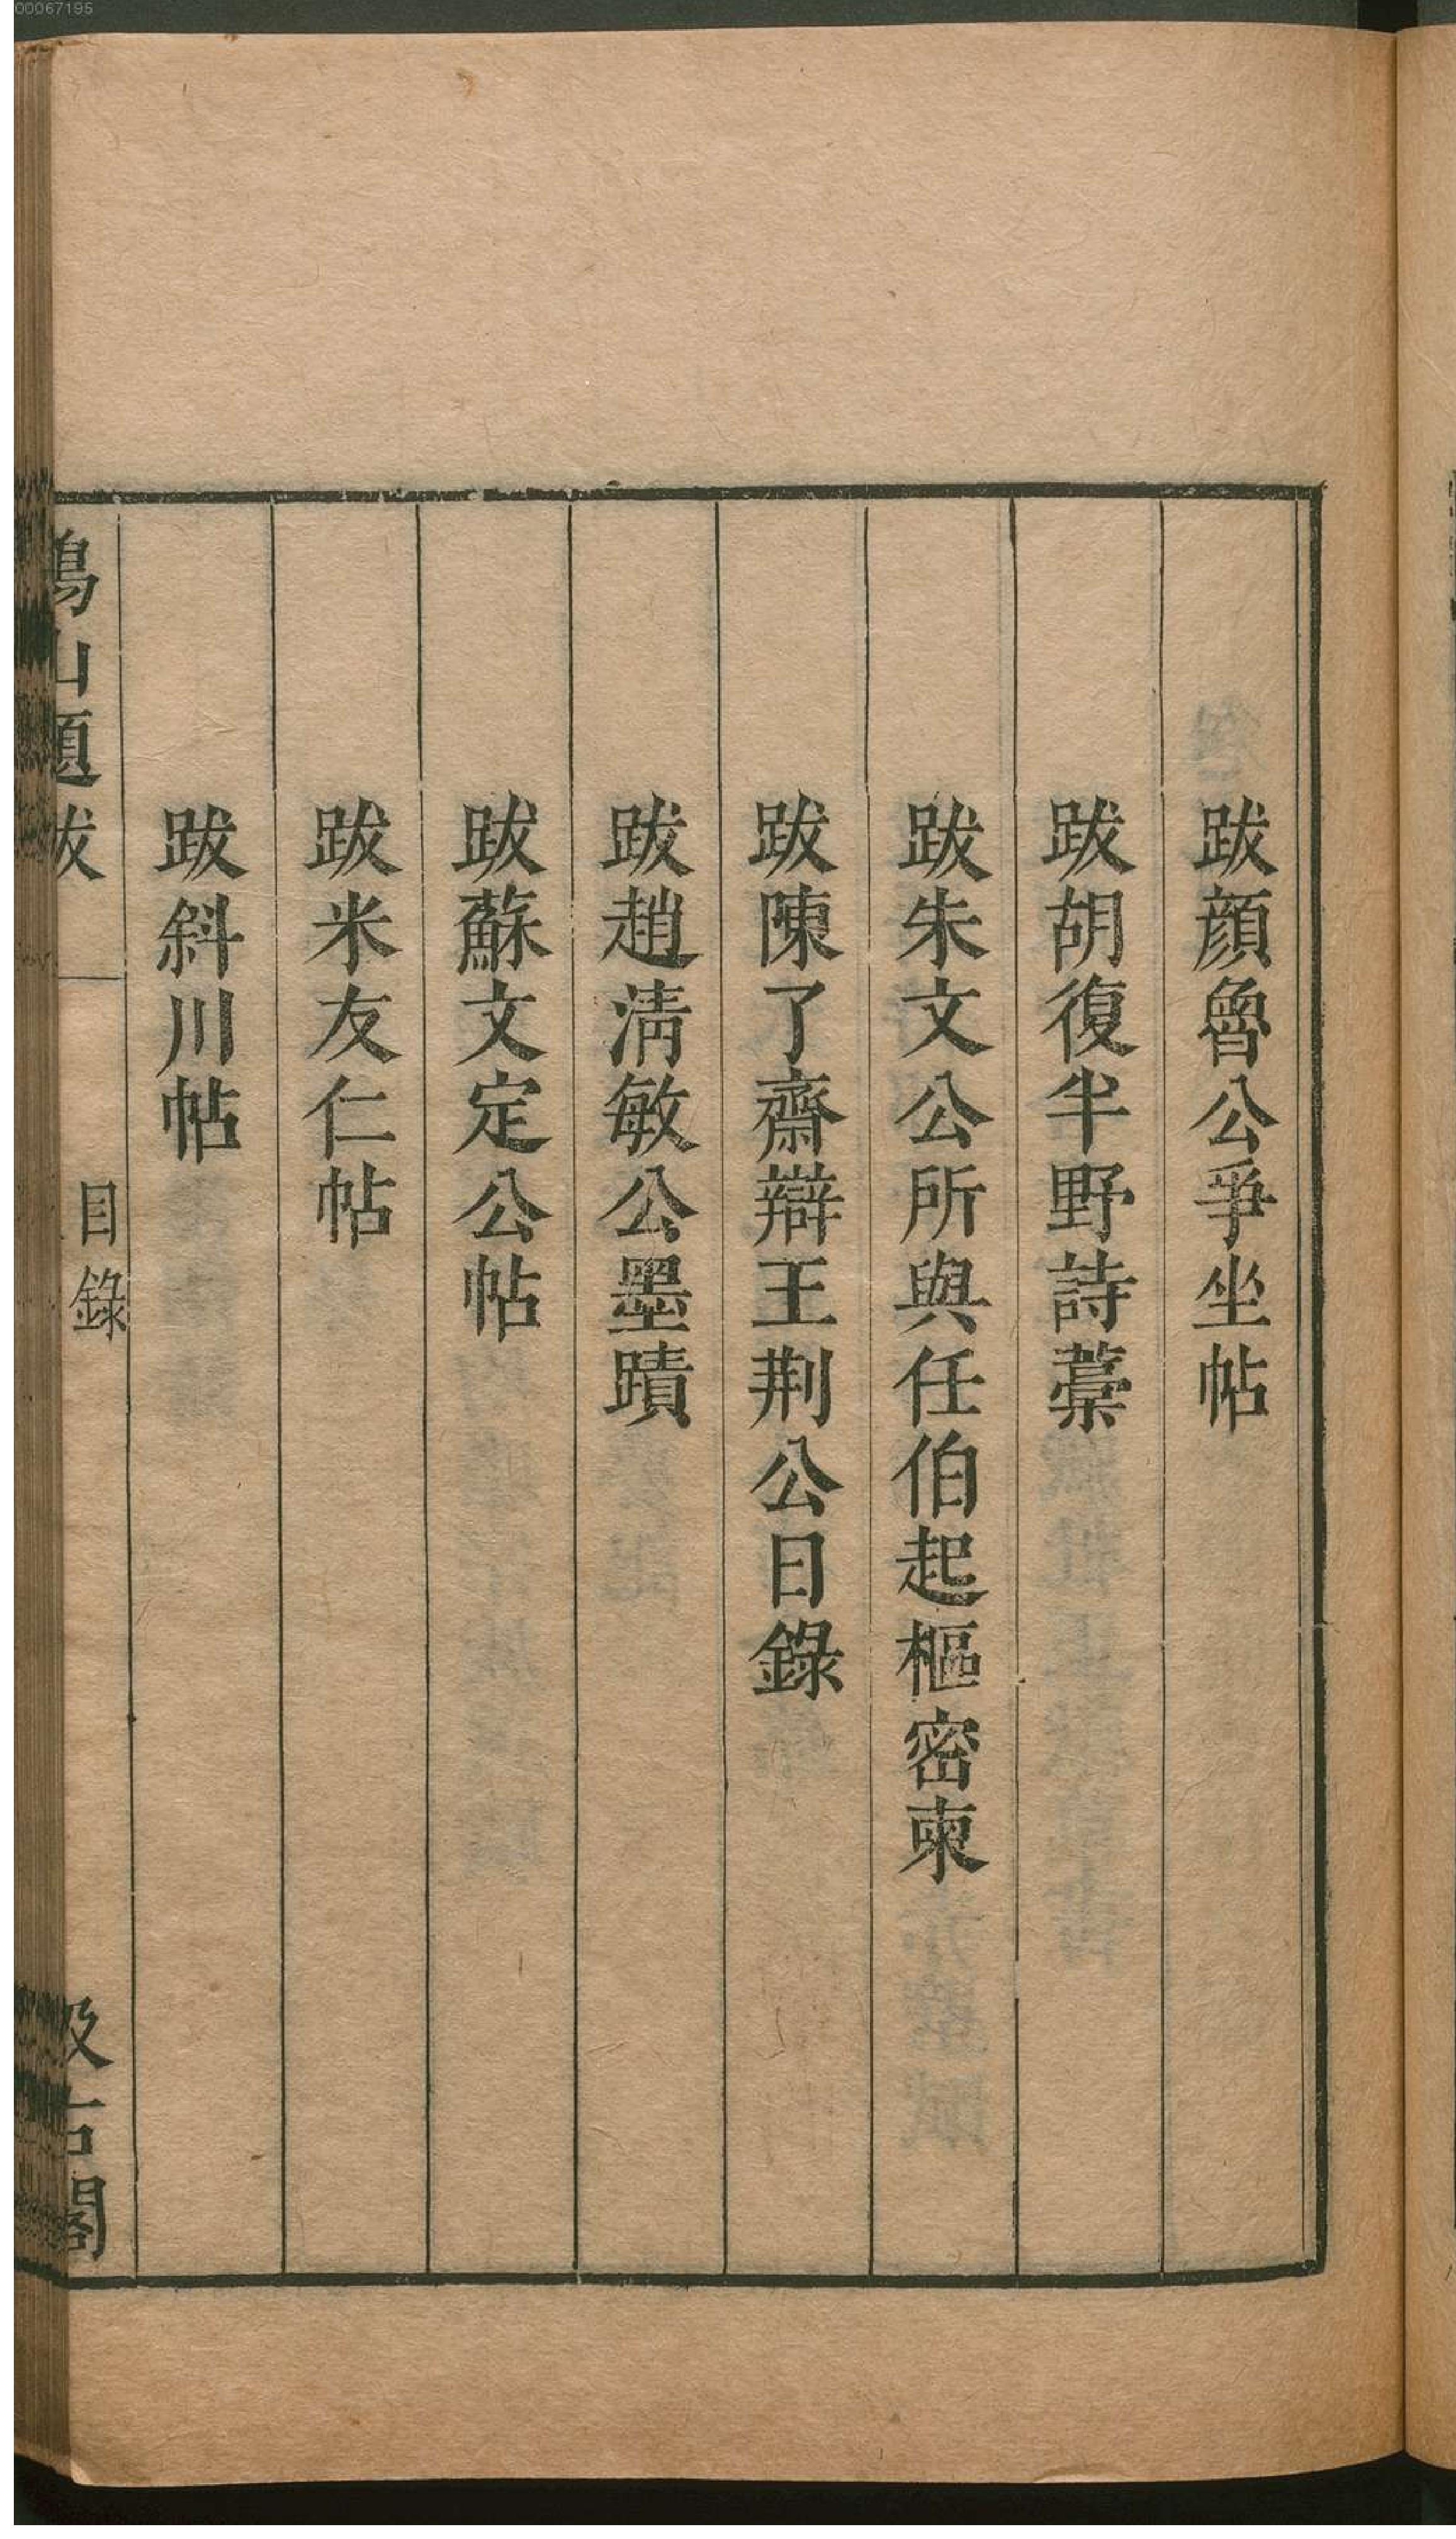 00067195
跋顔魯公爭坐帖
跋胡復半野詩藁
跋朱文公所與任伯起樞密柬
跋陳了齋辯王荆公日錄
跋趙淸敏公墨蹟
跋蘇文定公帖
跋米友仁帖
跋斜川帖
鶴山題跋
目錄
汲古閣